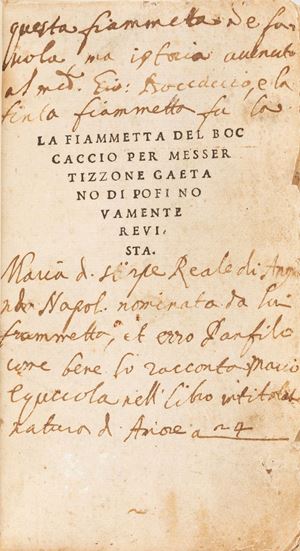 questa fiammetta nõ e fa-
uola, ma istoria auenuta
al med. Gio: Boccaccio, e la
finta fiammetta fu la
LA FIAMMETTA DEL BOC
CACCIO PER MESSER
TIZZONE GAETA
NO DI POFI NO
VAMENTE
REVI,
STA.
Maria d. stirpe Reale di
Napol. nominata da lui
fiammetta, et erro Panfilo
come bene lo racconta Mario
Equicola nell libro intitolat
natura d. Amore a